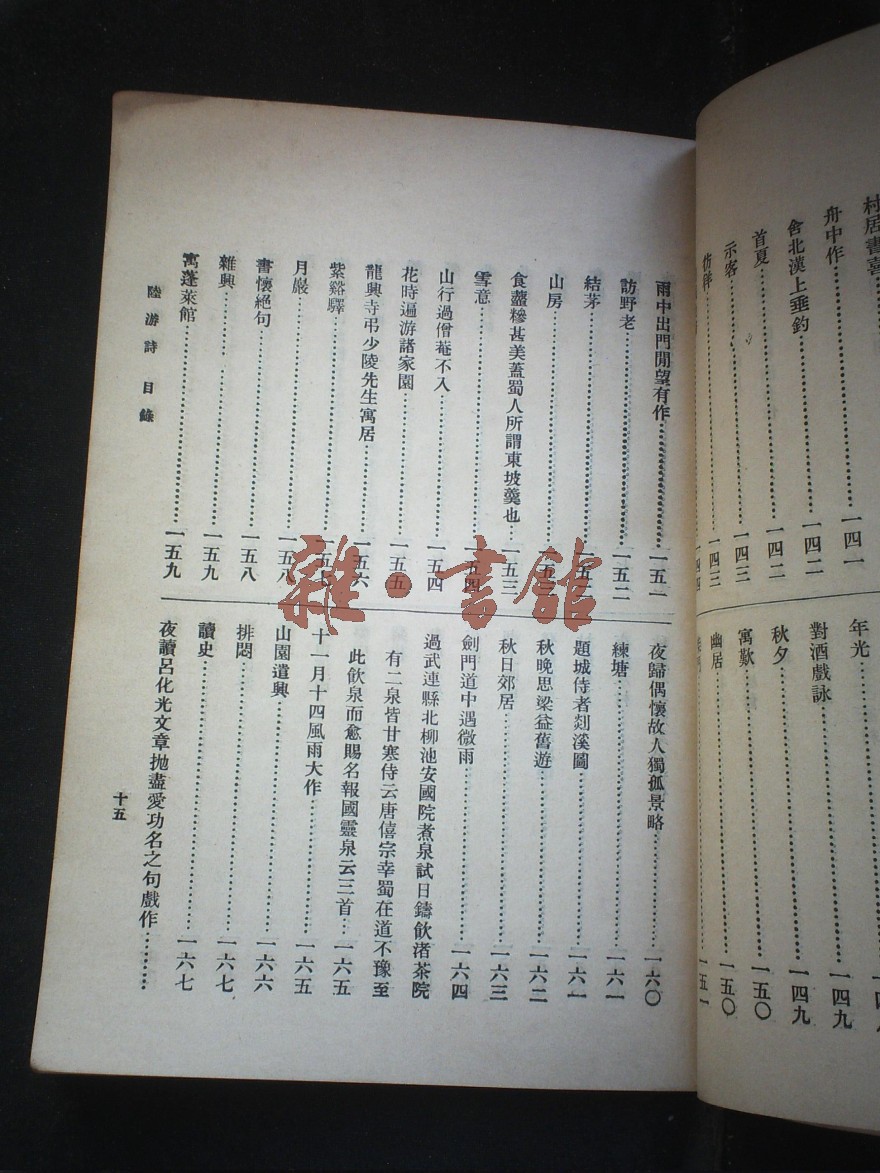 村居書喜
舟中作……一四一
舍北溪上垂釣……一四二
首夏……一四二
示客……一四三
一四三
一四四
年光
對酒戲詠……一四九
秋夕……一四九
寓歎……一五〇
幽居……一五〇
一五一
雨中出門閒望有作……一五一
訪野老……一五二
結茅……一五二
山房……一五三
食薺糝甚美蓋蜀人所謂東坡羹也…一五三
雪意……一五四
山行過僧菴不入……一五四
花時遍游諸家園……一五五
龍興寺弔少陵先生寓居……一五六
紫谿驛……一五七
月巖……一五八
書懷絕句……一五八
雜興……一五九
寓蓬萊館……一五九
夜歸偶懷故人獨孤景略……一六〇
練塘……一六一
題城侍者剡溪圖……一六一
秋晚思梁益舊遊……一六二
秋日郊居……一六三
劍門道中遇微雨……一六四
過武連縣北柳池安國院煮泉試日鑄飲渚茶院
有二泉皆甘寒侍云唐僖宗幸蜀在道不豫至
此飲泉而愈賜名報國靈泉云三首…一六五
十一月十四風雨大作……一六五
山園遣興……一六六
排悶……一六七
讀史……一六七
夜讀呂化光文章拋盡愛功名之句戲作……
陸游詩 目錄
十五
雜·書館